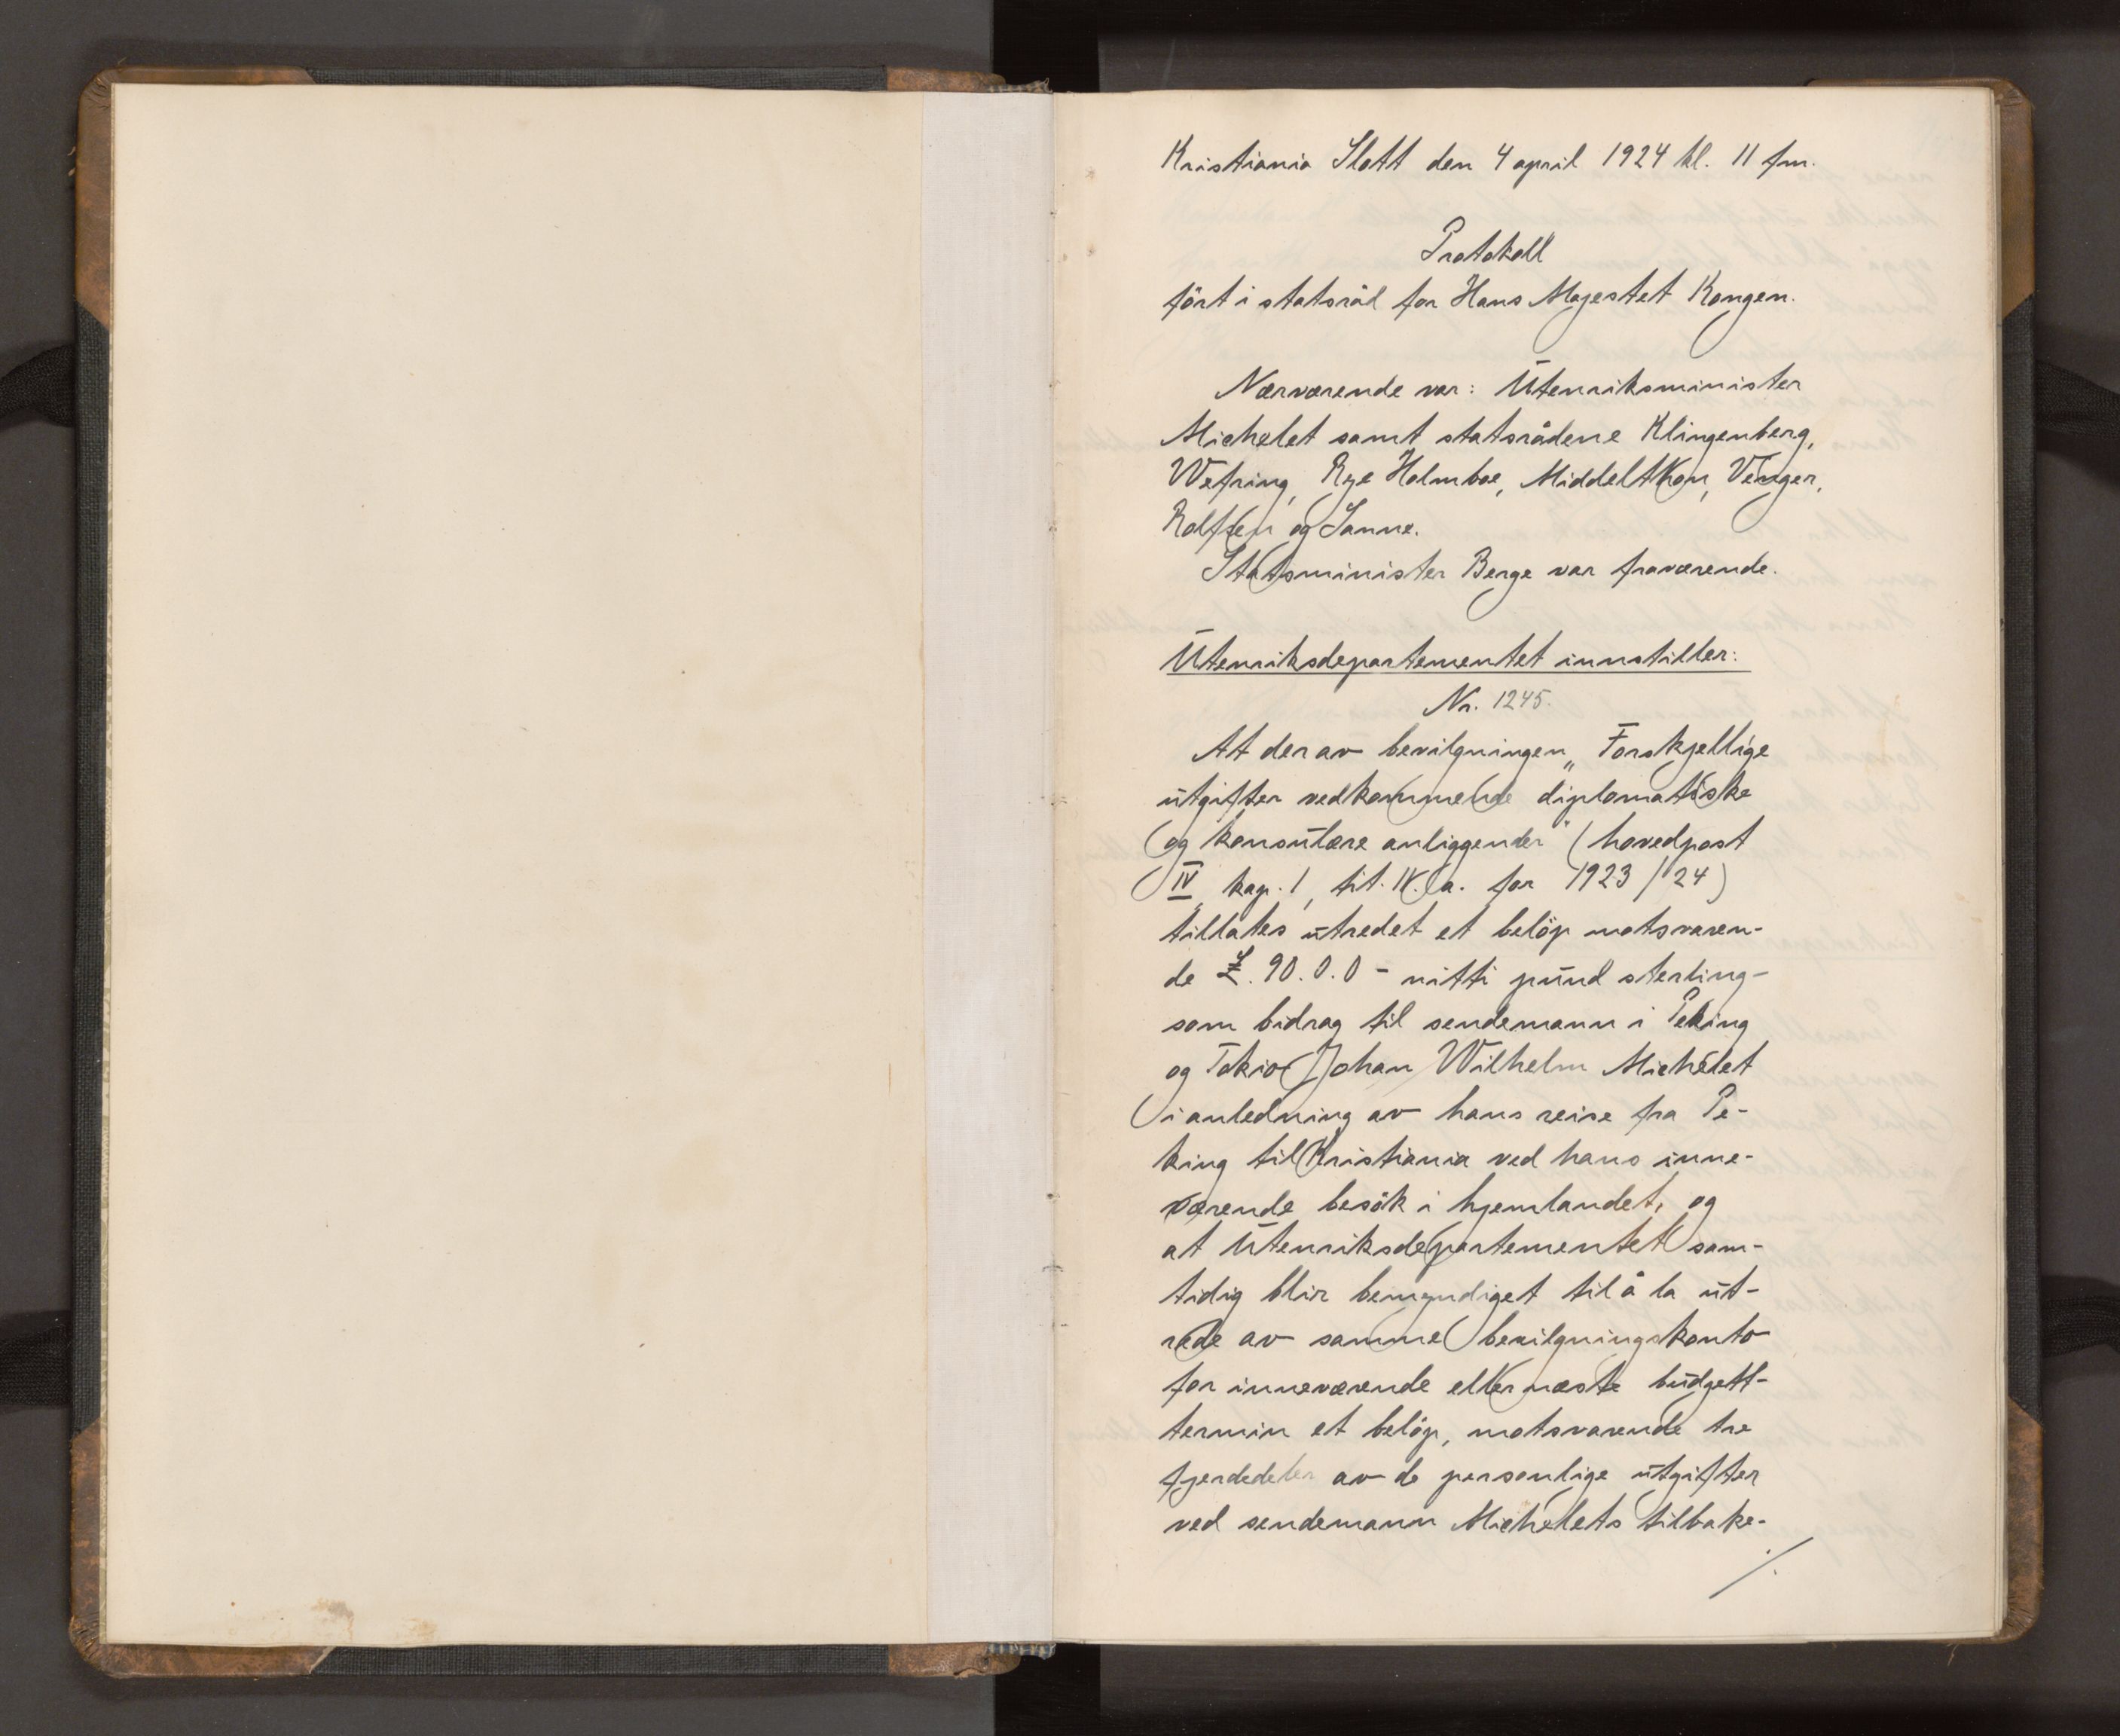 Kristiania Slott den 4 april 1924 kl. 11 fm.
Protokoll
ført i statsråd for Hans Majestet Kongen.
Nærværende var: Utenriksminister
Michelet samt statsrådene Klingenberg,
Wefring, Rye Holmboe, Middelthon, Venger,
Rolfsen og Sanne.
Statsminister Berge var fraværende.
Utenriksdepartementet innstiller:
Nr. 1245.
At der av bevilgningen „Forskjellige
utgifter vedkommende diplomatiske
og konsulære anliggender" (hovedpost
IV, kap. 1, tit. IV. a. for 1923/24)
tillates utredet et beløp motsvaren-
de £. 90.0.0 - nitti pund sterling -
som bidrag til sendemann i Peking
og Tokio Johan Wilhelm Michelet
i anledning av hans reise fra Pe-
king til Kristiania ved hans inne-
værende besøk i hjemlandet, og
at Utenriksdepartementet sam-
tidig blir bemyndiget til å la ut-
rede av samme bevilgningskonto
for inneværende eller næste budgett-
termin et beløp, motsvarende tre
fjerdedeler av de personlige utgifter
ved sendemann Michelets tilbake-
./.